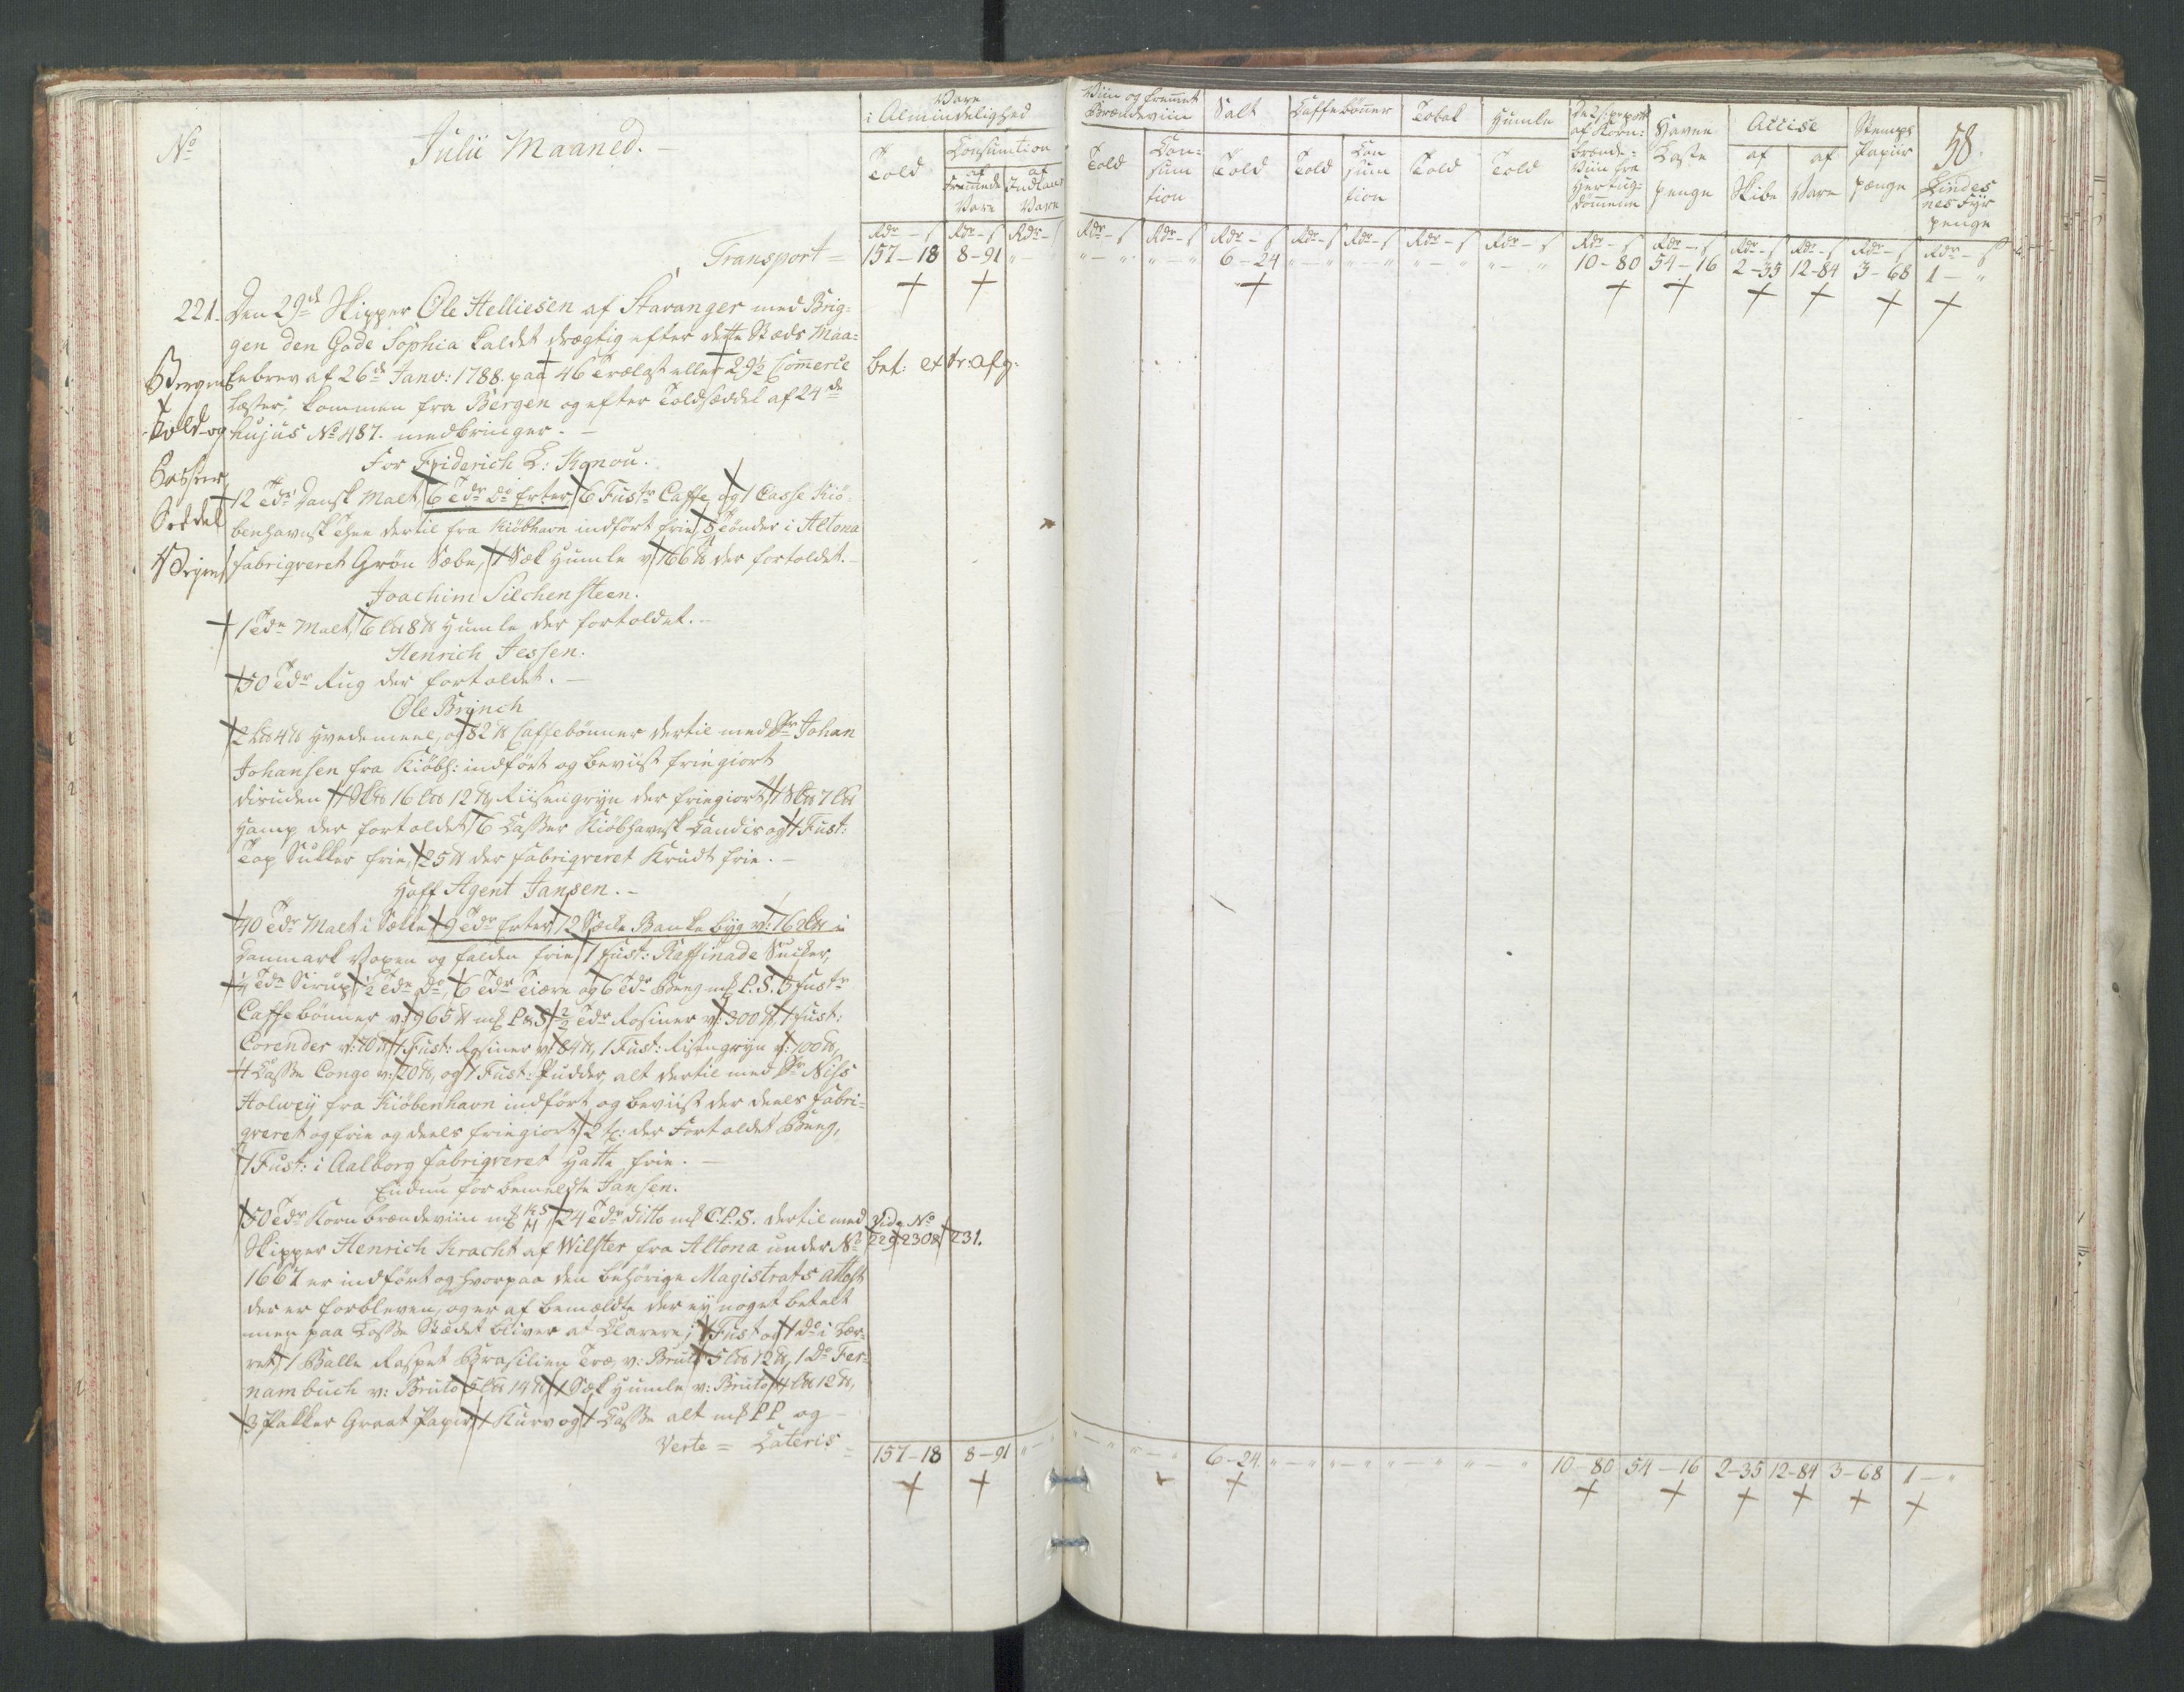 No
Julii Maaned.
Vare
i Almindelighed
Told
Consumtion
af Fremmede Vare
af Indlans Vare
Viin og fremmet
Brændeviin
Told
Consumtion
Salt
Told
Caffebønner
Told
Consumtion
Tobak
Told
Humle
Told
af Korn-
brænde-
Viin fra
Hertug-
dømmene
Havne
Laste
penge
Accise
af Skibe
af Vare
Stemp
Papiir
penge
58.
Lindes
nes Fyr
penge
Rdr - s Rdr - s Rdr - s Rdr - s Rdr - s Rdr - s Rdr - s Rdr - s Rdr - s Rdr - s Rdr - s Rdr - s Rdr - s Rdr - s Rdr - s Rdr - s
Transport = 157-18 8-91 6-24 10-80 54-16 2-35 12-84 3-68 1 - "
221. Den 29de Skipper Ole Helliesen af Stavanger med Brig-
gen den Gode Sophia kaldet drægtig efter dette Stæds Maa-
lebrev af 26de Janv: 1788. paa 46 Trælæst eller 29½ Commerce
Læster, kommen fra Bergen og efter Toldsæddel af 24de
hujus No 487. medbringer. -
Bergens
Told og
Passeer
Seddel
Bergens
bet: extr: afg:
For Friderich L: Konou.
12 Tdr Dansk Malt, 6 Tdr do Erter, 6 Fustr Caffe, og 1 Casse Kiø-
benhavnsk Thee dertil fra Kiøbhavn indført frie, 5 Tønder i Altona
fabriqveret Grøn Sæbe, 1 Sæk Humle v: 166 ℔ der fortoldet. -
Joachim Silchensteen.
1 Tde Malt, 6 L℔ 8 ℔ Humle der fortoldet. -
Henrich Jessen.
50 Tdr Rug der fortoldet. -
Ole Brynch
2 L℔ 4 ℔ Hvedemeel, og 82 ℔ Caffebønner dertil med Sr Johan
Johansen fra Kiøbh: indført og beviist friegiort
desuden 1 Sk℔ 16 L℔ 12 ℔ Riisengryn der friegiort, 1 Sk℔ 7 L℔
Hamp der fortoldet, 6 Casser Kiøbhavnsk Candis og 1 Fust:
Top Sukker frie, 25 ℔ der fabriqveret Krudt frie. -
Hoff Agent Jansen. -
40 Tdr Malt i Sække, 9 Tdr Erter, 2 Sække Banke byg v: 16 L℔ i
Danmark voxen og falden frie, 1 Fust: Raffinade Sucker,
¼ Tde Sirup, ½ Tde do, 6 Tdr Tiære og 6 Tdr Beeg mk P.S. 3 Fustr
Caffebønner v: 965 ℔ mk P & S, 2/2 Tdr Rosiner v: 300 ℔, 1 Fust:
Corender v: 70 ℔, 1 Fust: Rosiner v: 84 ℔, 1 Fust: Risengryn v: 100 ℔,
1 Casse Congo v: 20 ℔, og 1 Fust: Pudder, alt dertil med Sr Niss
Holweÿ fra Kiøbenhavn indført og beviist der deels fabri-
qveret og frie og deels friegiort, 2 t: der Fortoldet Beeg,
1 Fust: i Aalborg fabriqveret Hatte frie. -
Endnu for bemeldte Jansen.
50 Tdr Korn brændeviin mk HS M, 24 Tdr Ditto mk C.P.S. dertil med
Vide No
229, 230 & 231.
Skipper Henrich Kracht af Wilster fra Altona under No
1667 er indført og hvorpaa den behørige Magistrats Attest
der er forbleven, og er af bemældte der ey noget betalt
men paa Losse Stædet bliver at Clarere; 1 Fust og 1 do i Lær-
ret, 1 Balle Raspet Brasilien Træ, v: Bruto 5 L℔ 12 ℔, 1 Do Fer-
nambuch v: Bruto 5 L℔ 14 ℔, 1 Sæk Humle v: Bruto 4 L℔ 12 ℔,
3 Pakker Graat Papiir, 1 Kurv og 1 Casse alt mk PP og -
Verte = Lateris = 157-18 8-91 6-24. 10-80 54-16 2-35 12-84 3-68 1 - "